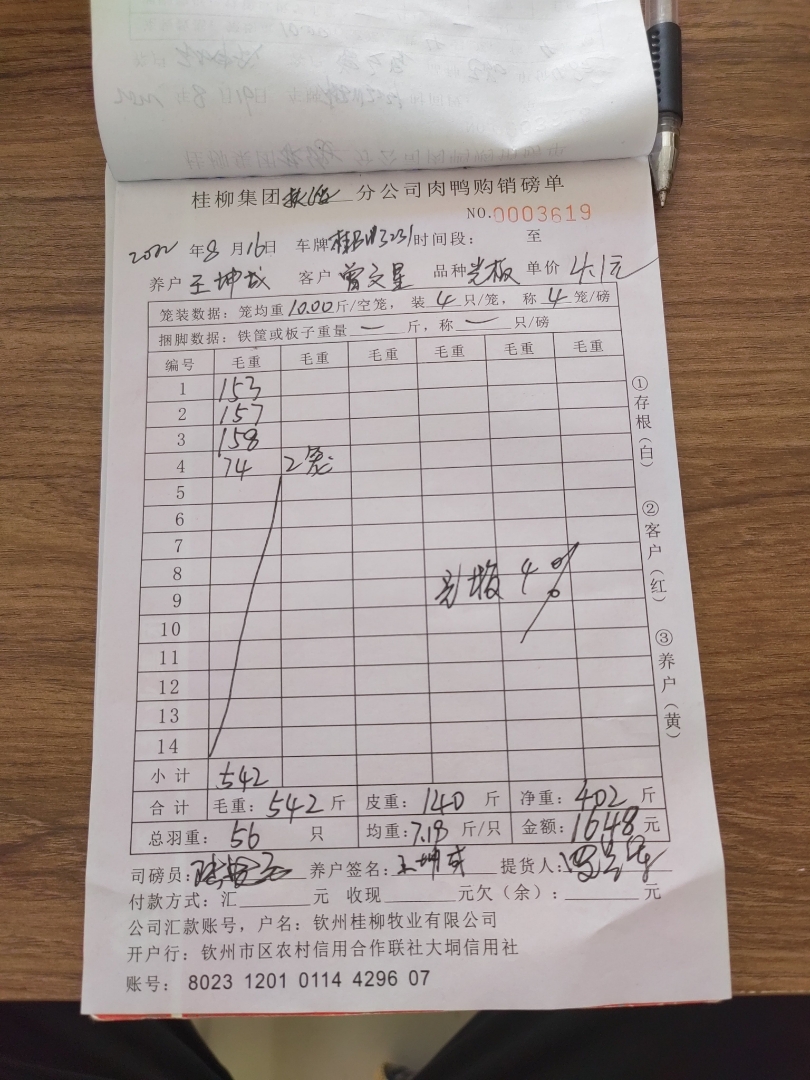 桂柳集团钦州分公司肉鸭购销磅单
NO.0003619
2022年8月16日 车牌 时间段: 至
养户 王坤成 客户 曾文星 品种 光板 单价 4.1元
笼装数据: 笼均重10.00斤/空笼, 装4只/笼, 称4笼/磅
捆脚数据: 铁筐或板子重量 一 斤, 称 一 只/磅
编号 毛重 毛重 毛重 毛重 毛重 毛重
1 153
2 157
3 158
4 74 2笼
5
6
7
8
9 光板 4%
10
11
12
13
14
小计 542
合计 毛重: 542斤 皮重: 140斤 净重: 402斤
总羽重: 56 只 均重: 7.18斤/只 金额: 1648元
司磅员: 养户签名: 王坤成 提货人:
付款方式: 汇______元 收现______元欠(余): ______元
公司汇款账号, 户名: 钦州桂柳牧业有限公司
开户行: 钦州市区农村信用合作联社大垌信用社
账号: 8023 1201 0114 4296 07
①存根(白)
②客户(红)
③养户(黄)